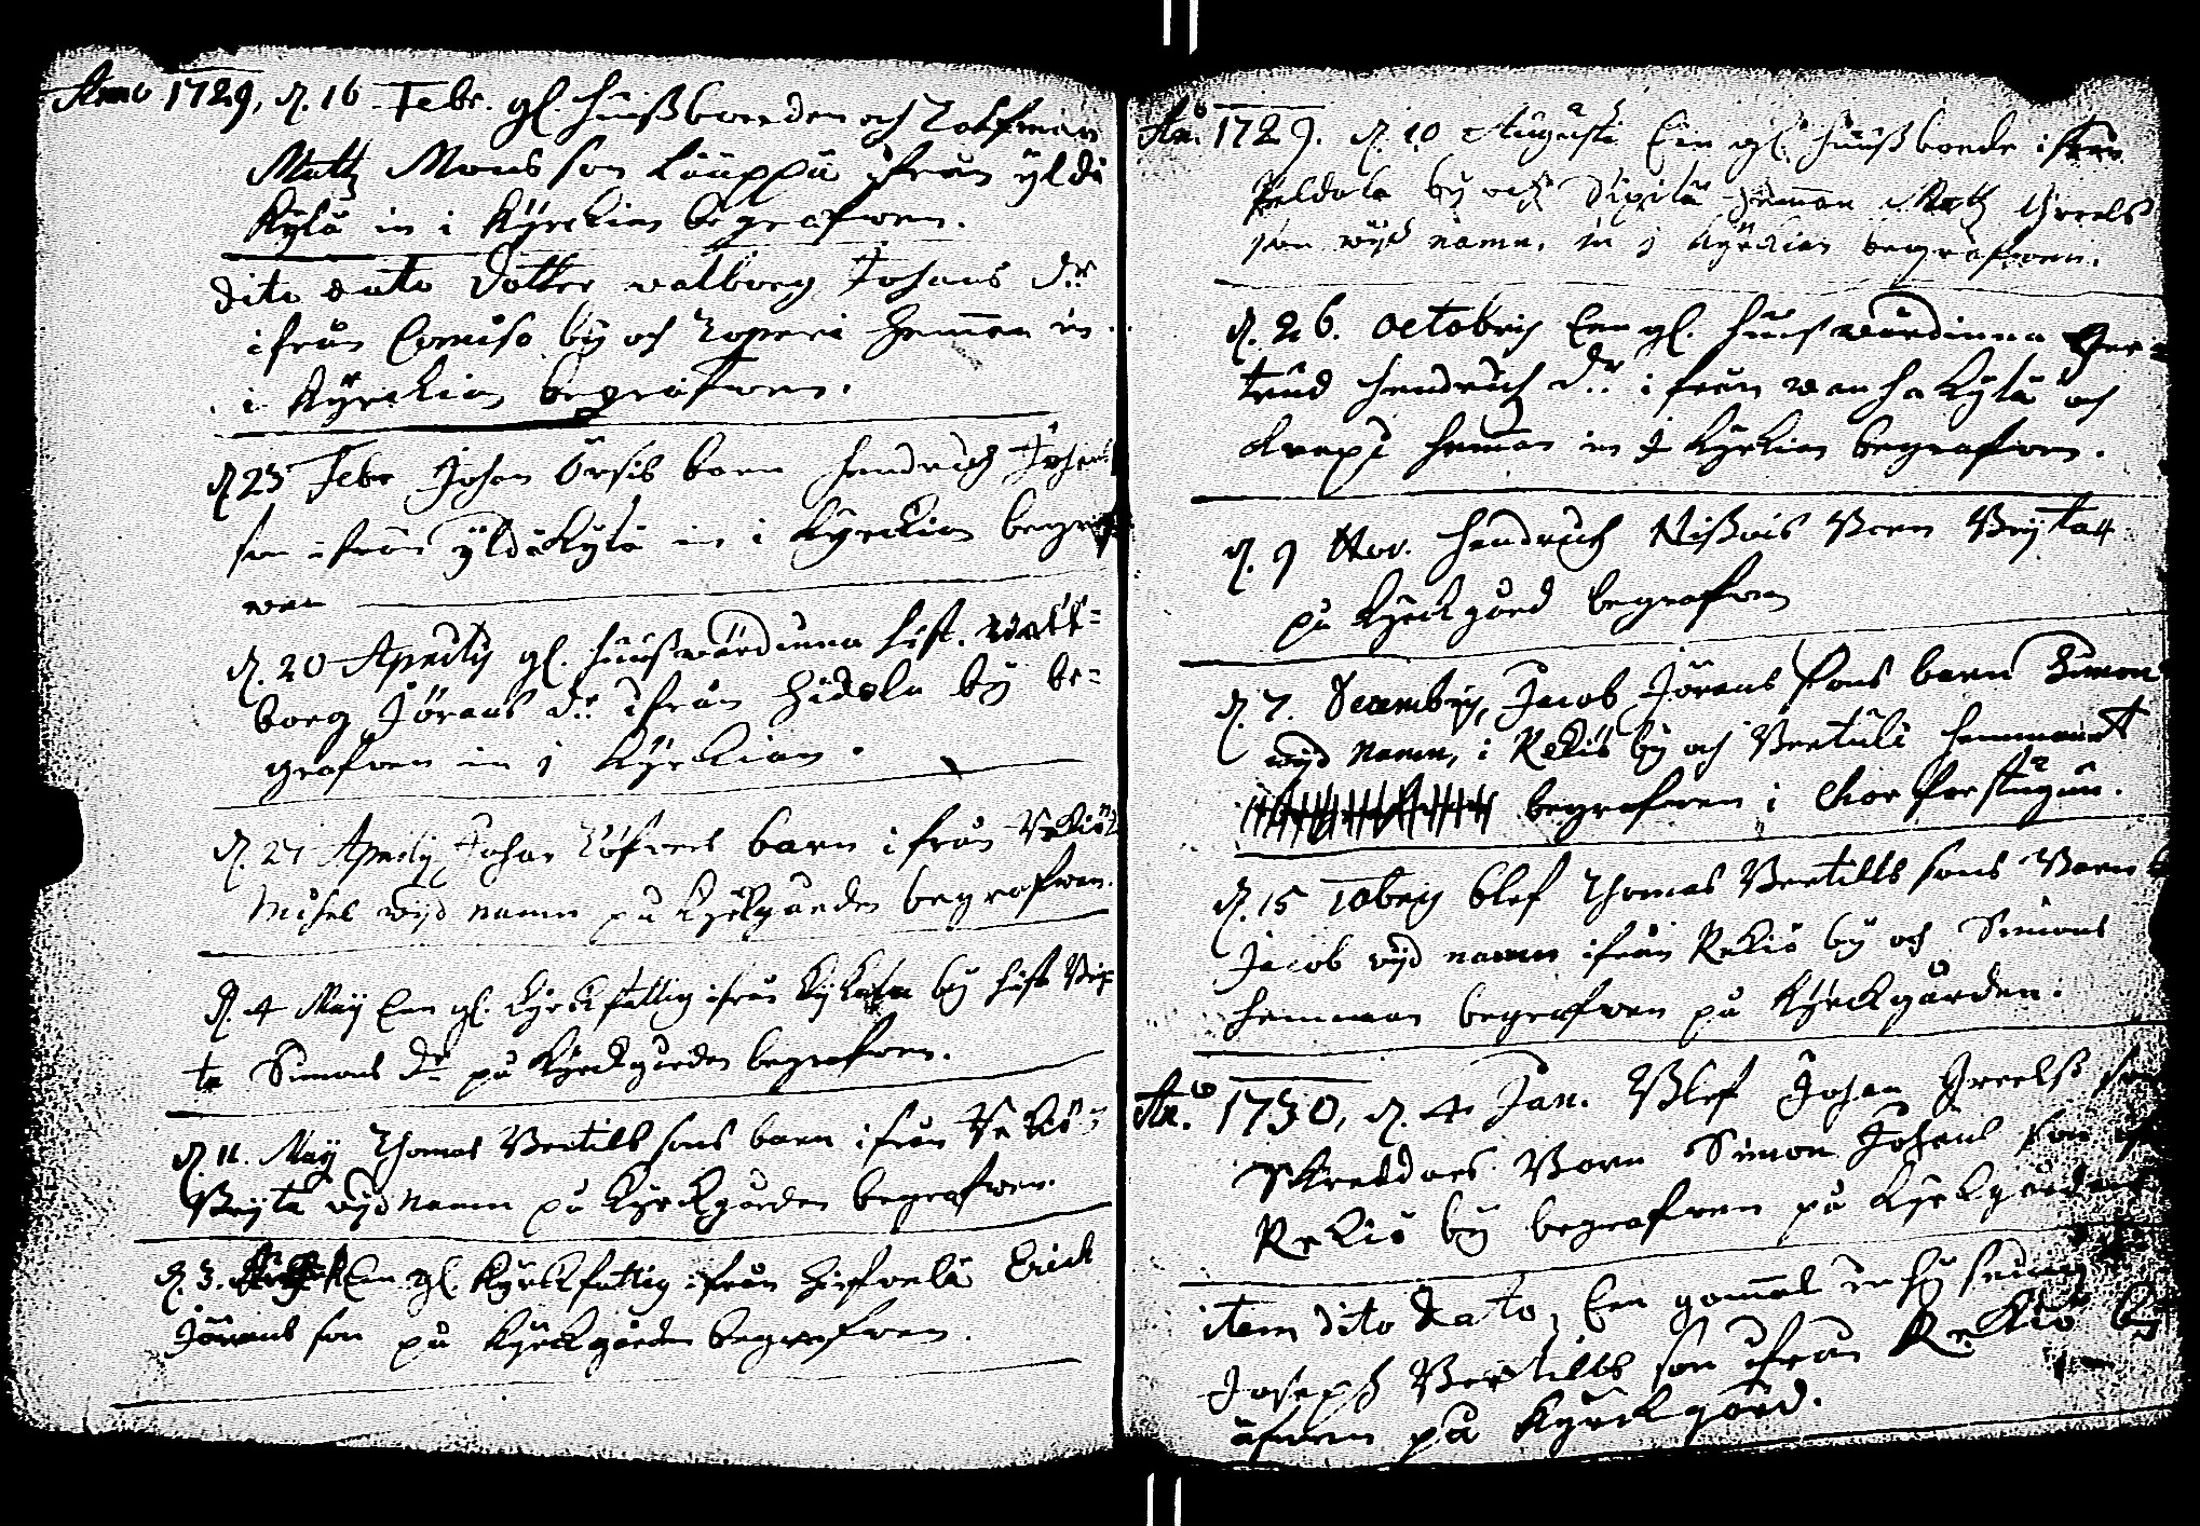 Anno 1729, d. 16 Febr. gl. huußbonden och Tolfman
Matz Mons son Lauppa ifrån yldä
Kylä in i Kyrckian begrafwen.
dito dato Dotter walborg Johans dr
ifrån by och hemman in
i Kyrckian begrafwen.
d. 23 Febr Johan barn hendrich Johans
son ifrån yldäkylä in i Kyrckian begraf
wen
d. 20 Aprilis gl. huußwärdinna hust. wall=
borg Jörans dr ifrån by be=
grafwen in i Kyrckian.
d. 27 Aprilis Johan barn ifrån
Mihel wyd namn på kyrkgården begrafwen.
d. 4 Maij Een gl. kyrckfattig ifrån by hust Brii
ta Simons dr på kyrckgården begrafwen.
d. 11. Maij Thomas Bertills sons barn ifrån Rekiö
Brijta wyd namn på kyrckgården begrafwen.
d. 3. Een gl. kyrckfattig ifrån Erich
Jörans son på kyrckgården begrafwen.
An:o 1729. d. 10 Augusti Een gl. huußbonde ifrån
Peldola by och hemman Matz Greels
son wyd namn, in i kyrckian begrafwen.
d. 26. octobris Een gl. huuswärdinna Ger=
trud hendrich dr ifrån wanhakylä och
hemman in i kyrckian begrafwen.
d. 9 Nov. hendrich barn Brijta
på kyrckgård begrafwen
d. 7. Decembris, Jacob Jörans sons barn Simon
wyd namn, i Rekiö by och Bertuli hemmanet
begrafwen i
d. 15 10bris blef Thomas Bertills sons Barn
Jacob wyd namn ifrån Rekiö by och Simons
hemman begrafwen på Kyrckgården.
An:o 1730, d. 4 Jan. Blef Johan Greelß son
Skreddars Barn Simon Johans son
Rekiö by begrafwen på kyrckgården
item dito dato, Een gammal
Joseph Bertills son ifrån Rekiö by
äfwen på Kyrckgård.